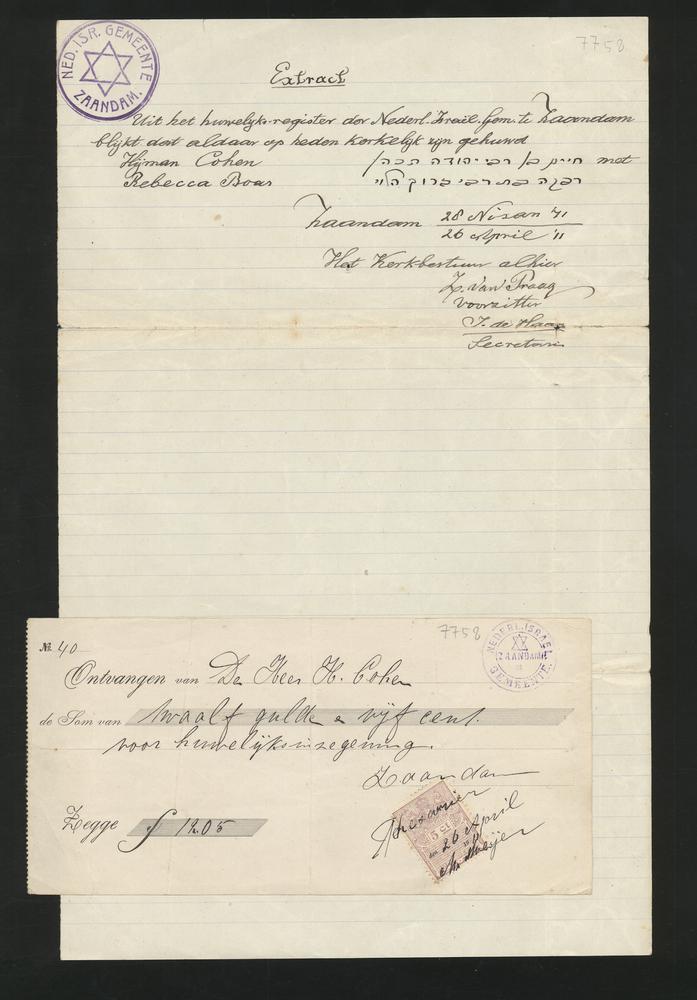 NED. ISR. GEMEENTE
ZAANDAM.
7758
Extract
Uit het huwelijks-register der Nederl. Israël. Gem. te Zaandam
blijkt dat aldaar op heden kerkelijk zijn gehuwd
Hijman Cohen חיים בן רבי יהודה הכהן met
Rebecca Boas רבקה בת רבי ברוך הלוי
Zaandam 28 Nisan '71
26 April '11
Het Kerkbestuur alhier
Z. van Praag
voorzitter
J. de Haas
Secretaris
7758
NEDERL. ISRAEL.
ZAANDAM
GEMEENTE
№ 40
Ontvangen van De Heer H. Cohen
de Som van twaalf gulde n vijf cent.
voor huwelijksinzegening.
Zaandam
Zegge ƒ 12.05
Thesaurier
26 April